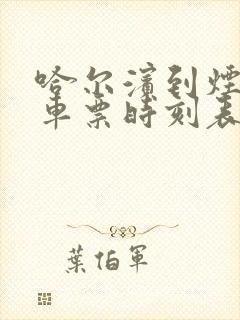 哈尔滨到烟
车票时刻表
葉伯軍